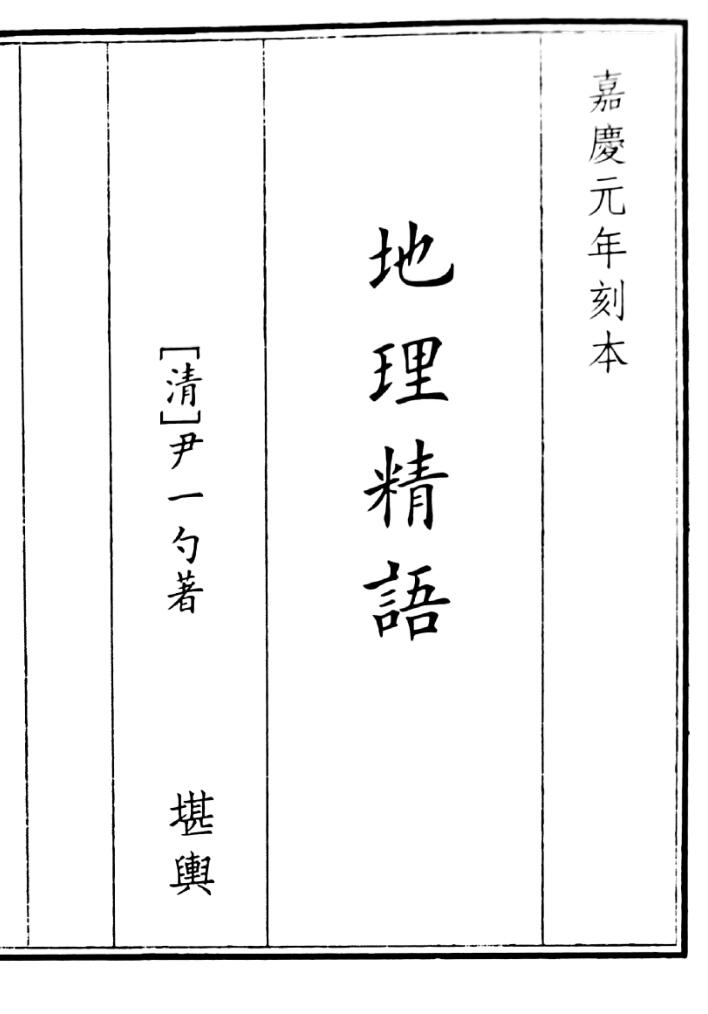 嘉慶元年刻本
地理精語
[清]尹一勺著
堪輿